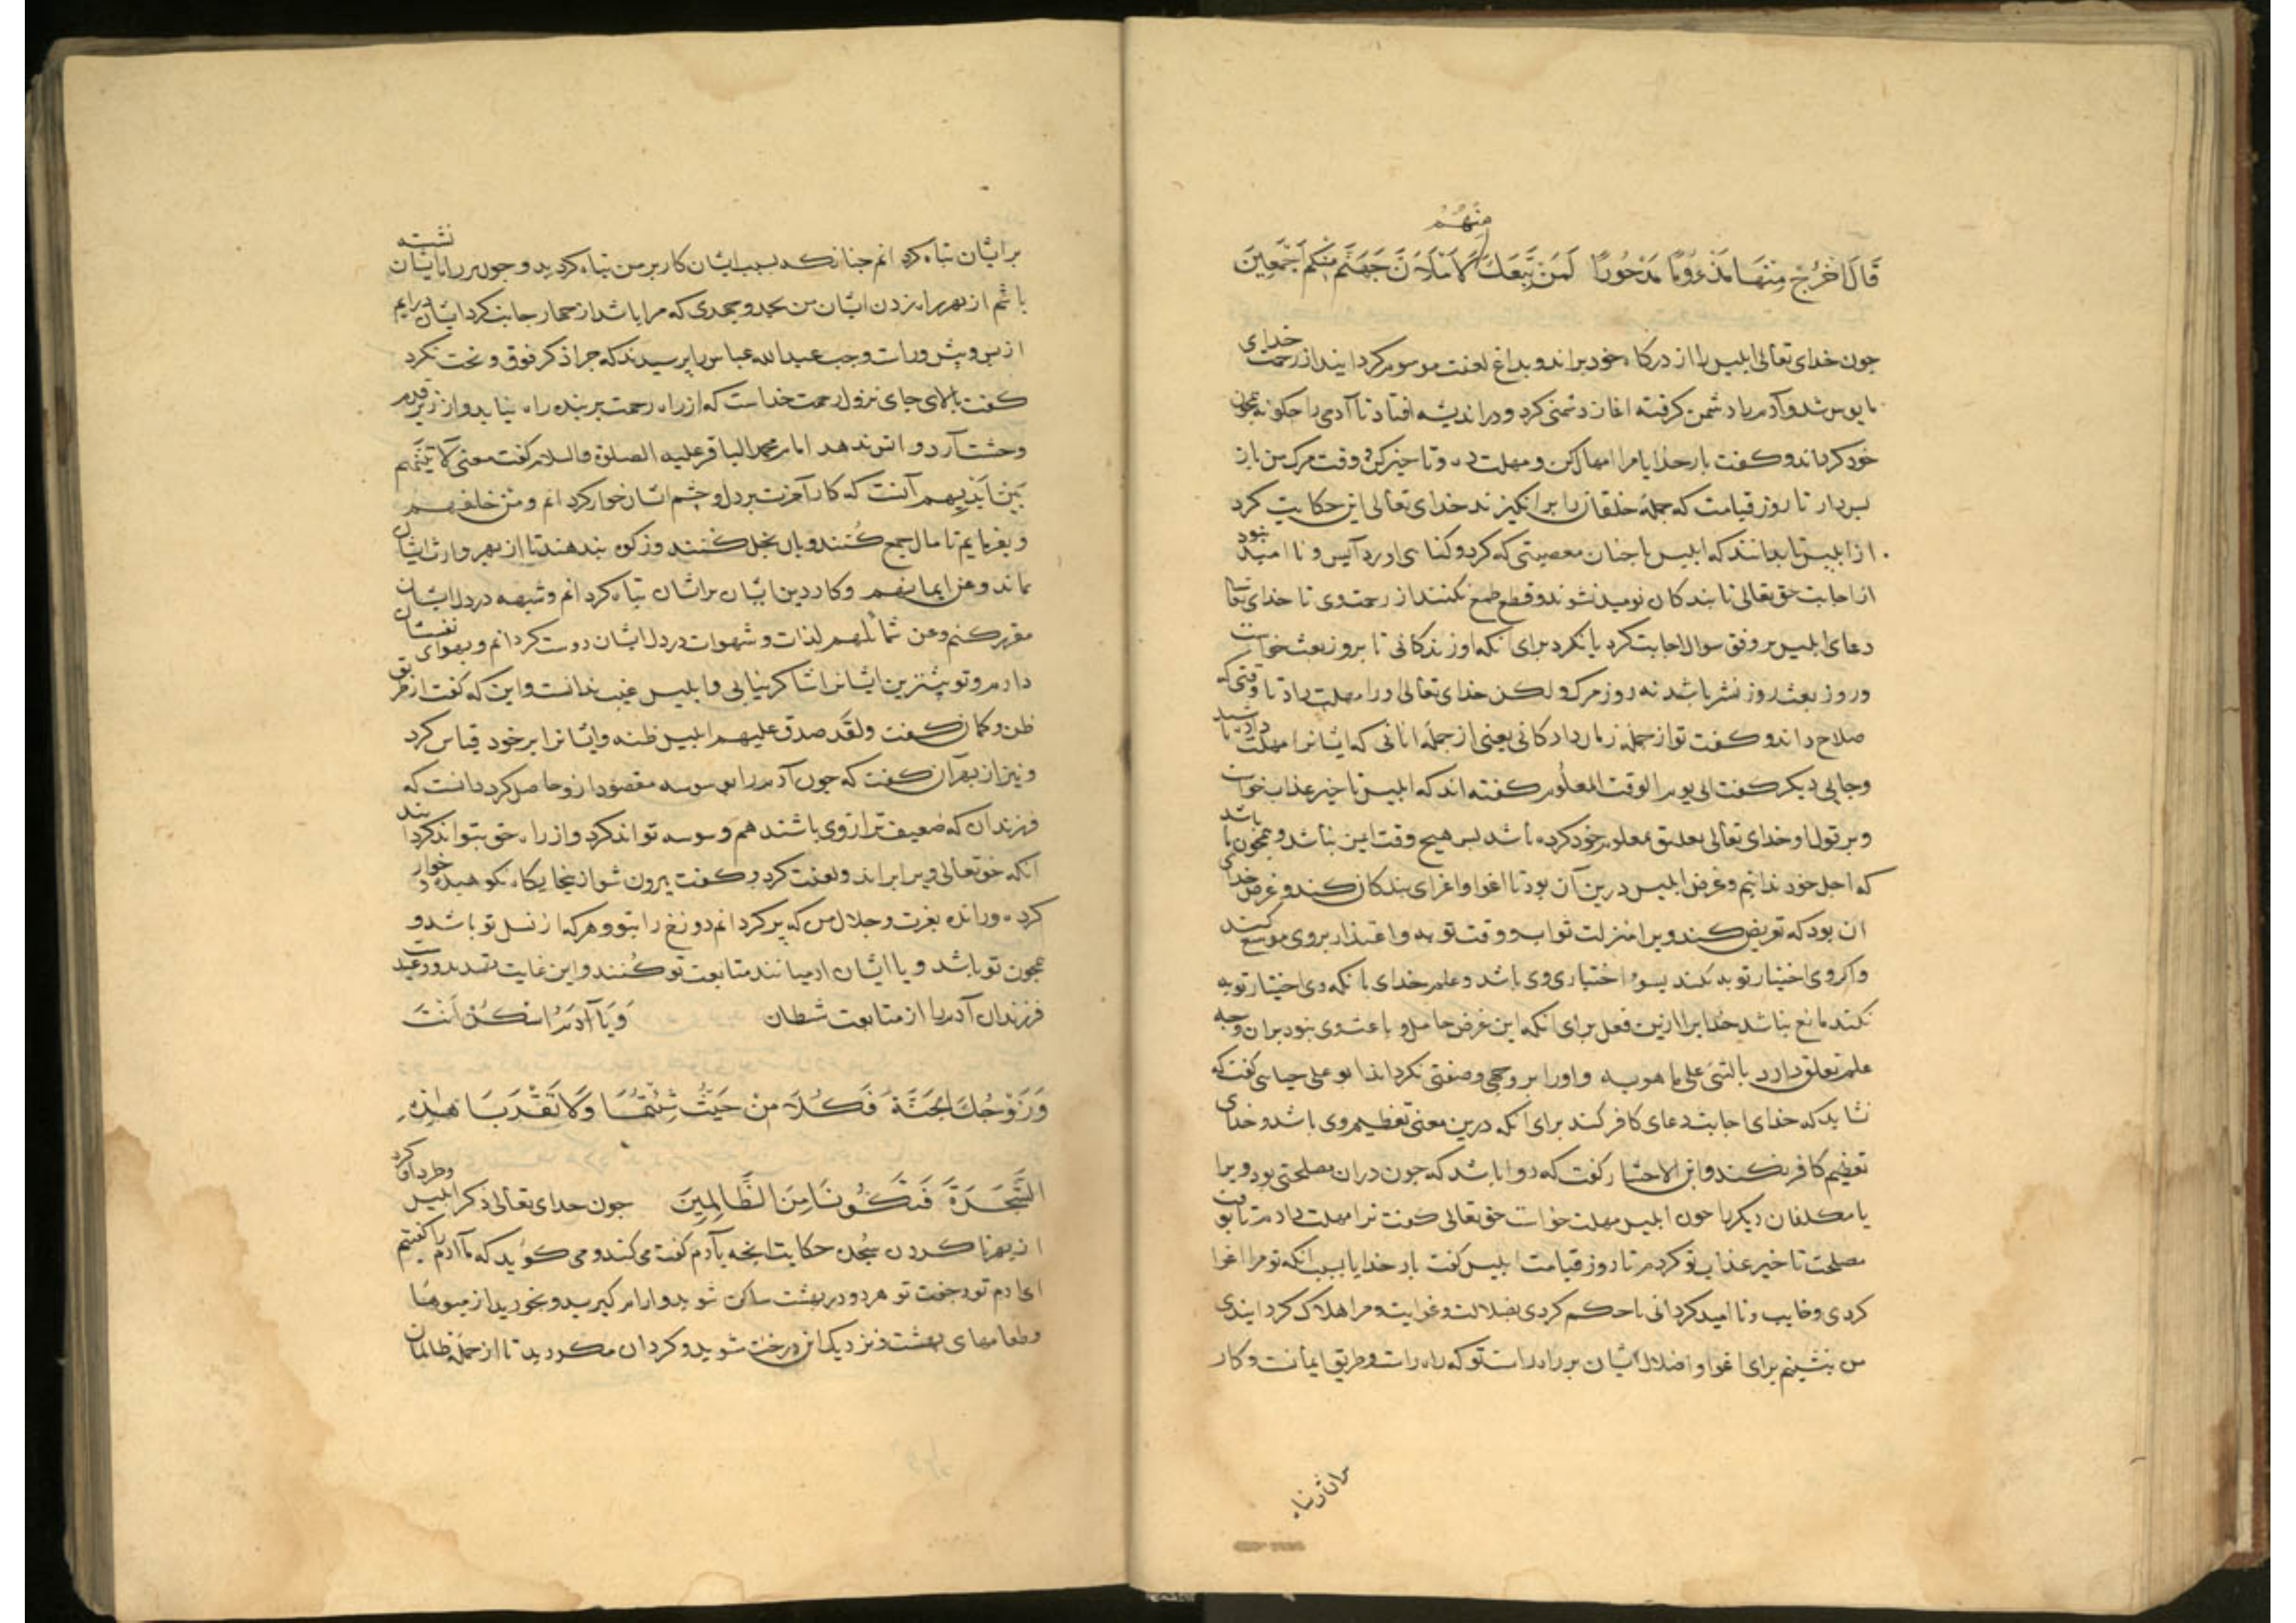 منهم
قَالَ اخْرُجْ مِنْهَا مَذْءُومًا مَدْحُورًا لَمَنْ تَبِعَكَ لَأَمْلَأَنَّ جَهَنَّمَ مِنْكُمْ أَجْمَعِينَ
جون خدای تعالی ابلیس را از درکاه خود براند و بداغ لعنت موسوم کردانید از رحمت خدای
مایوس شد و آدم را دشمن کرفته اغاز دشمنی کرد و در اندیشه افتاد تا آدمی را جکونه همجون
خود کرداند و کفت بار خدایا مرا امهال کن و مهلت ده و تاخیر کن و وقت مرک من باز
بس دار تا روز قیامت که جمله خلقان را برانکیزند خدای تعالی این حکایت کرد
از ابلیس تا بدانند که ابلیس با جنان معصیتی که کرد و کناهی اورد آیس و نا امید نبود
از اجابت حق تعالی تا بندکان نومید نشوند و قطع طمع نکنند از رحمت وی تا خدای تعالی
دعای ابلیس بر وفق سوال اجابت کرد یا نکرد برای آنکه او زندکانی تا بروز بعث خواست
و روز بعث روز نشر باشد نه روز مرک و لکن خدای تعالی او را مهلت داد تا وقتی که
صلاح داند و کفت تو از جمله زمان دادکانی یعنی از جمله انانی که ایشانرا مهلت داده باشند
و جایی دیکر کفت الی یوم الوقت المعلوم کفته اند که ابلیس تاخیر عذاب خواست
و بر قول او خدای تعالی معلوم خود کرده باشد بس هیج وقت ایمن نباشد و همجون ما باشد
که اجل خود ندانیم و غرض ابلیس درین آن بود تا اغوا و اغرای بندکان کند و غرض خدای
ان بود که تعریض کند ویرا منزلت ثواب و وقت توبه و اعتذار بر وی موسع کند
و اکر وی اختیار توبه نکند بسوء اختیاری وی باشد و علم خدای بانکه وی اختیار توبه
نکند مانع نباشد خدایرا ازین فعل برای انکه این غرض حامل و باعث وی نبود بران وجه
علم تعلق دارد بالشیء علی ما هو به و او را بر وجهی و صفتی نکرداند ابو علی جبایی کفت که
نشاید که خدای اجابت دعای کافر کند برای انکه درین معنی تعظیم وی باشد و خدای
تعظیم کافر نکند و ابن الاخشاد کفت که روا باشد که جون دران مصلحتی بود ویرا
یا مکلفان دیکر را جون ابلیس مهلت خواست حق تعالی کفت ترا مهلت دادم تا وقت
مصلحت تاخیر عذاب تو کردم تا روز قیامت ابلیس کفت بار خدایا بسبب انکه تو مرا اغوا
کردی و خایب و نا امید کردانی یا حکم کردی بضلالت و غوایت و مرا هلاک کردانیدی
من بنشینم برای اغوا و اضلال ایشان بر راه راست تو که راه راست و طریق ایمانست و کار
بر ایشان تباه
بر ایشان تباه کردانم جنانک بسبب ایشان کار بر من تباه کردید و جون بر راه ایشان نشسته
باشم از بهر راه زدن ایشان من بجد و جهدی که مرا باشد از جهار جانب کرد ایشان درایم
از بس و پیش و راست و جب عبد الله عباس را پرسیدند که جرا ذکر فوق و تحت نکرد
کفت بالای جای نزول رحمت خداست که از راه رحمت بر بنده راه نیابد و از زیر قدم
وحشت آرد و انس ندهد امام محمد الباقر علیه الصلوة والسلام کفت معنی لآتینهم
من بین ایدیهم آنست که کار آخرت بر دل و جشم ایشان خوار کردانم و من خلفهم
و بفرمایم تا مال جمع کنند و بان بخل کنند و زکوه بندهند تا از بهر وارث ایشان
بماند و عن ایمانهم و کار دین ایشان بر ایشان تباه کردانم و شبهه در دل ایشان
مقرر کنم و عن شمائلهم لذات و شهوات در دل ایشان دوست کردانم و بهوای نفسشان
دارم و تو بیشترین ایشانرا شاکر نیابی و ابلیس غیب ندانست و این که کفت از طریق
ظن و کمان کفت ولقد صدق علیهم ابلیس ظنه و ایشانرا بر خود قیاس کرد
و نیز از بهر آن کفت که جون آدم را بوسوسه مقصود ازو حاصل کرد دانست که
فرزندان که ضعیف تر از وی باشند هم وسوسه تواند کرد و از راه حق بتواند کردانید
انکه حق تعالی ویرا براند و لعنت کرد و کفت بیرون شو ازینجایکاه نکوهیده و خوار
کرده و رانده بعزت و جلال من که پر کردانم دوزخ را بتو و هر که از نسل تو باشد و
همجون تو باشد و یا ایشان ادمیانند متابعت تو کنند و این غایت تهدید و وعید
فرزندان آدم را از متابعت شطان وَيَا آدَمُ اسْكُنْ أَنْتَ
وَزَوْجُكَ الْجَنَّةَ فَكُلَا مِنْ حَيْثُ شِئْتُمَا وَلَا تَقْرَبَا هَذِهِ
الشَّجَرَةَ فَتَكُونَا مِنَ الظَّالِمِينَ جون خدای تعالی ذکر ابلیس و طرد او کرد
از بهر ناکردن سجده حکایت انجه بآدم کفت می کند و می کوید که ما آدم را کفتیم
ای ادم تو و جفت تو هر دو در بهشت ساکن شوید و ارام کیرید و بخورید از میوها
و طعامهای بهشت و نزدیک این درخت مشوید و کرد ان مکردید تا از جمله ظالمان